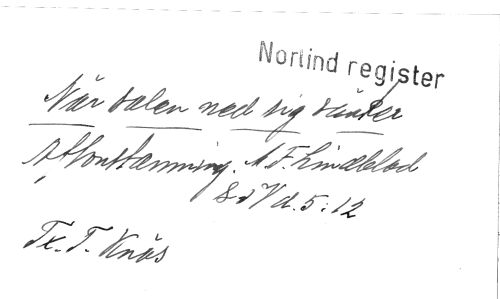 Norlind register
När solen ned sig sänker
Aftonstämning. A. F. Lindblad
S d. 5:12
Tx. T. Knös